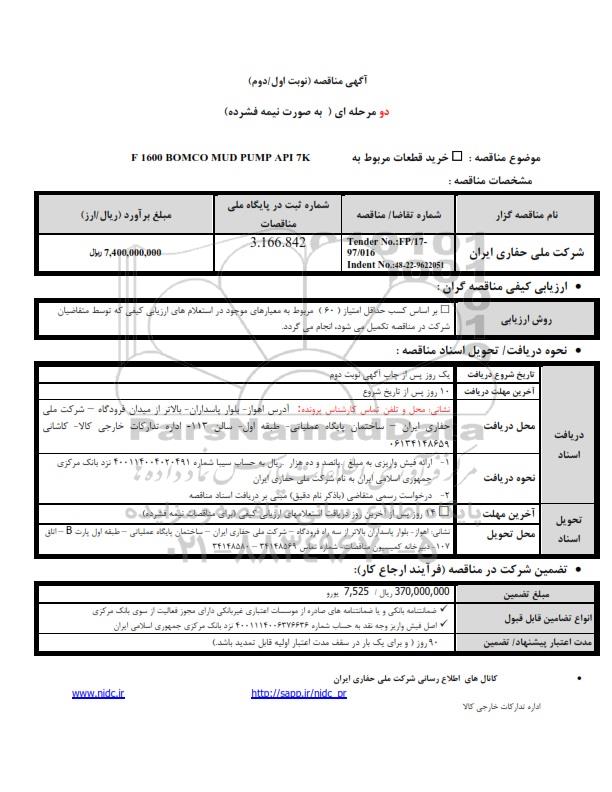 آگهی مناقصه (نوبت اول/دوم)
دو مرحله ای ( به صورت نیمه فشرده)
موضوع مناقصه : □ خرید قطعات مربوط به F 1600 BOMCO MUD PUMP API 7K
مشخصات مناقصه :
نام مناقصه گزار
شماره تقاضا/ مناقصه
شماره ثبت در پایگاه ملی مناقصات
مبلغ برآورد (ریال/ارز)
شرکت ملی حفاری ایران
Tender No.:FP/17-
97/016
Indent No.:48-22-9622051
3.166.842
7,400,000,000 ریال
• ارزیابی کیفی مناقصه گران :
روش ارزیابی
□ بر اساس کسب حداقل امتیاز ( ۶۰ ) مربوط به معیارهای موجود در استعلام های ارزیابی کیفی که توسط متقاضیان
شرکت در مناقصه تکمیل می شود، انجام می گردد.
• نحوه دریافت/ تحویل اسناد مناقصه :
دریافت اسناد
تاریخ شروع دریافت
یک روز پس از چاپ آگهی نوبت دوم
آخرین مهلت دریافت
۱۰ روز پس از تاریخ شروع
محل دریافت
نشانی، محل و تلفن تماس کارشناس پرونده: آدرس اهواز- بلوار پاسداران- بالاتر از میدان فرودگاه – شرکت ملی
حفاری ایران – ساختمان پایگاه عملیاتی- طبقه اول- سالن ۱۱۳- اداره تدارکات خارجی کالا- کاشانی
۰۶۱۳۴۱۴۸۶۵۹
نحوه دریافت
۱- ارائه فیش واریزی به مبلغ پانصد و ده هزار ریال به حساب سیبا شماره ۴۰۰۱۱۴۰۰۴۰۲۰۴۹۱ نزد بانک مرکزی
جمهوری اسلامی ایران به نام شرکت ملی حفاری ایران
۲- درخواست رسمی متقاضی (باذکر نام دقیق) مبنی بر دریافت اسناد مناقصه
تحویل اسناد
آخرین مهلت
□ ۱۴ روز پس از آخرین روز دریافت استعلامهای ارزیابی کیفی (برای مناقصات نیمه فشرده)
محل تحویل
نشانی: اهواز- بلوار پاسداران بالاتر از سه راه فرودگاه – شرکت ملی حفاری ایران – ساختمان پایگاه عملیاتی – طبقه اول پارت B – اتاق
۱۰۷- دبیرخانه کمیسیون مناقصات- شماره تماس ۳۴۱۴۸۵۶۹ – ۳۴۱۴۸۵۸۰
• تضمین شرکت در مناقصه (فرآیند ارجاع کار):
مبلغ تضمین
370,000,000 ریال / 7,525 یورو
انواع تضامین قابل قبول
✓ ضمانتنامه بانکی و یا ضمانتنامه های صادره از موسسات اعتباری غیربانکی دارای مجوز فعالیت از سوی بانک مرکزی
✓ اصل فیش واریز وجه نقد به حساب شماره ۴۰۰۱۱۱۴۰۰۶۳۷۶۶۳۶ نزد بانک مرکزی جمهوری اسلامی ایران
مدت اعتبار پیشنهاد/ تضمین
۹۰ روز ( و برای یک بار در سقف مدت اعتبار اولیه قابل تمدید باشد.)
• کانال های اطلاع رسانی شرکت ملی حفاری ایران
http://sapp.ir/nidc_pr
www.nidc.ir
اداره تدارکات خارجی کالا